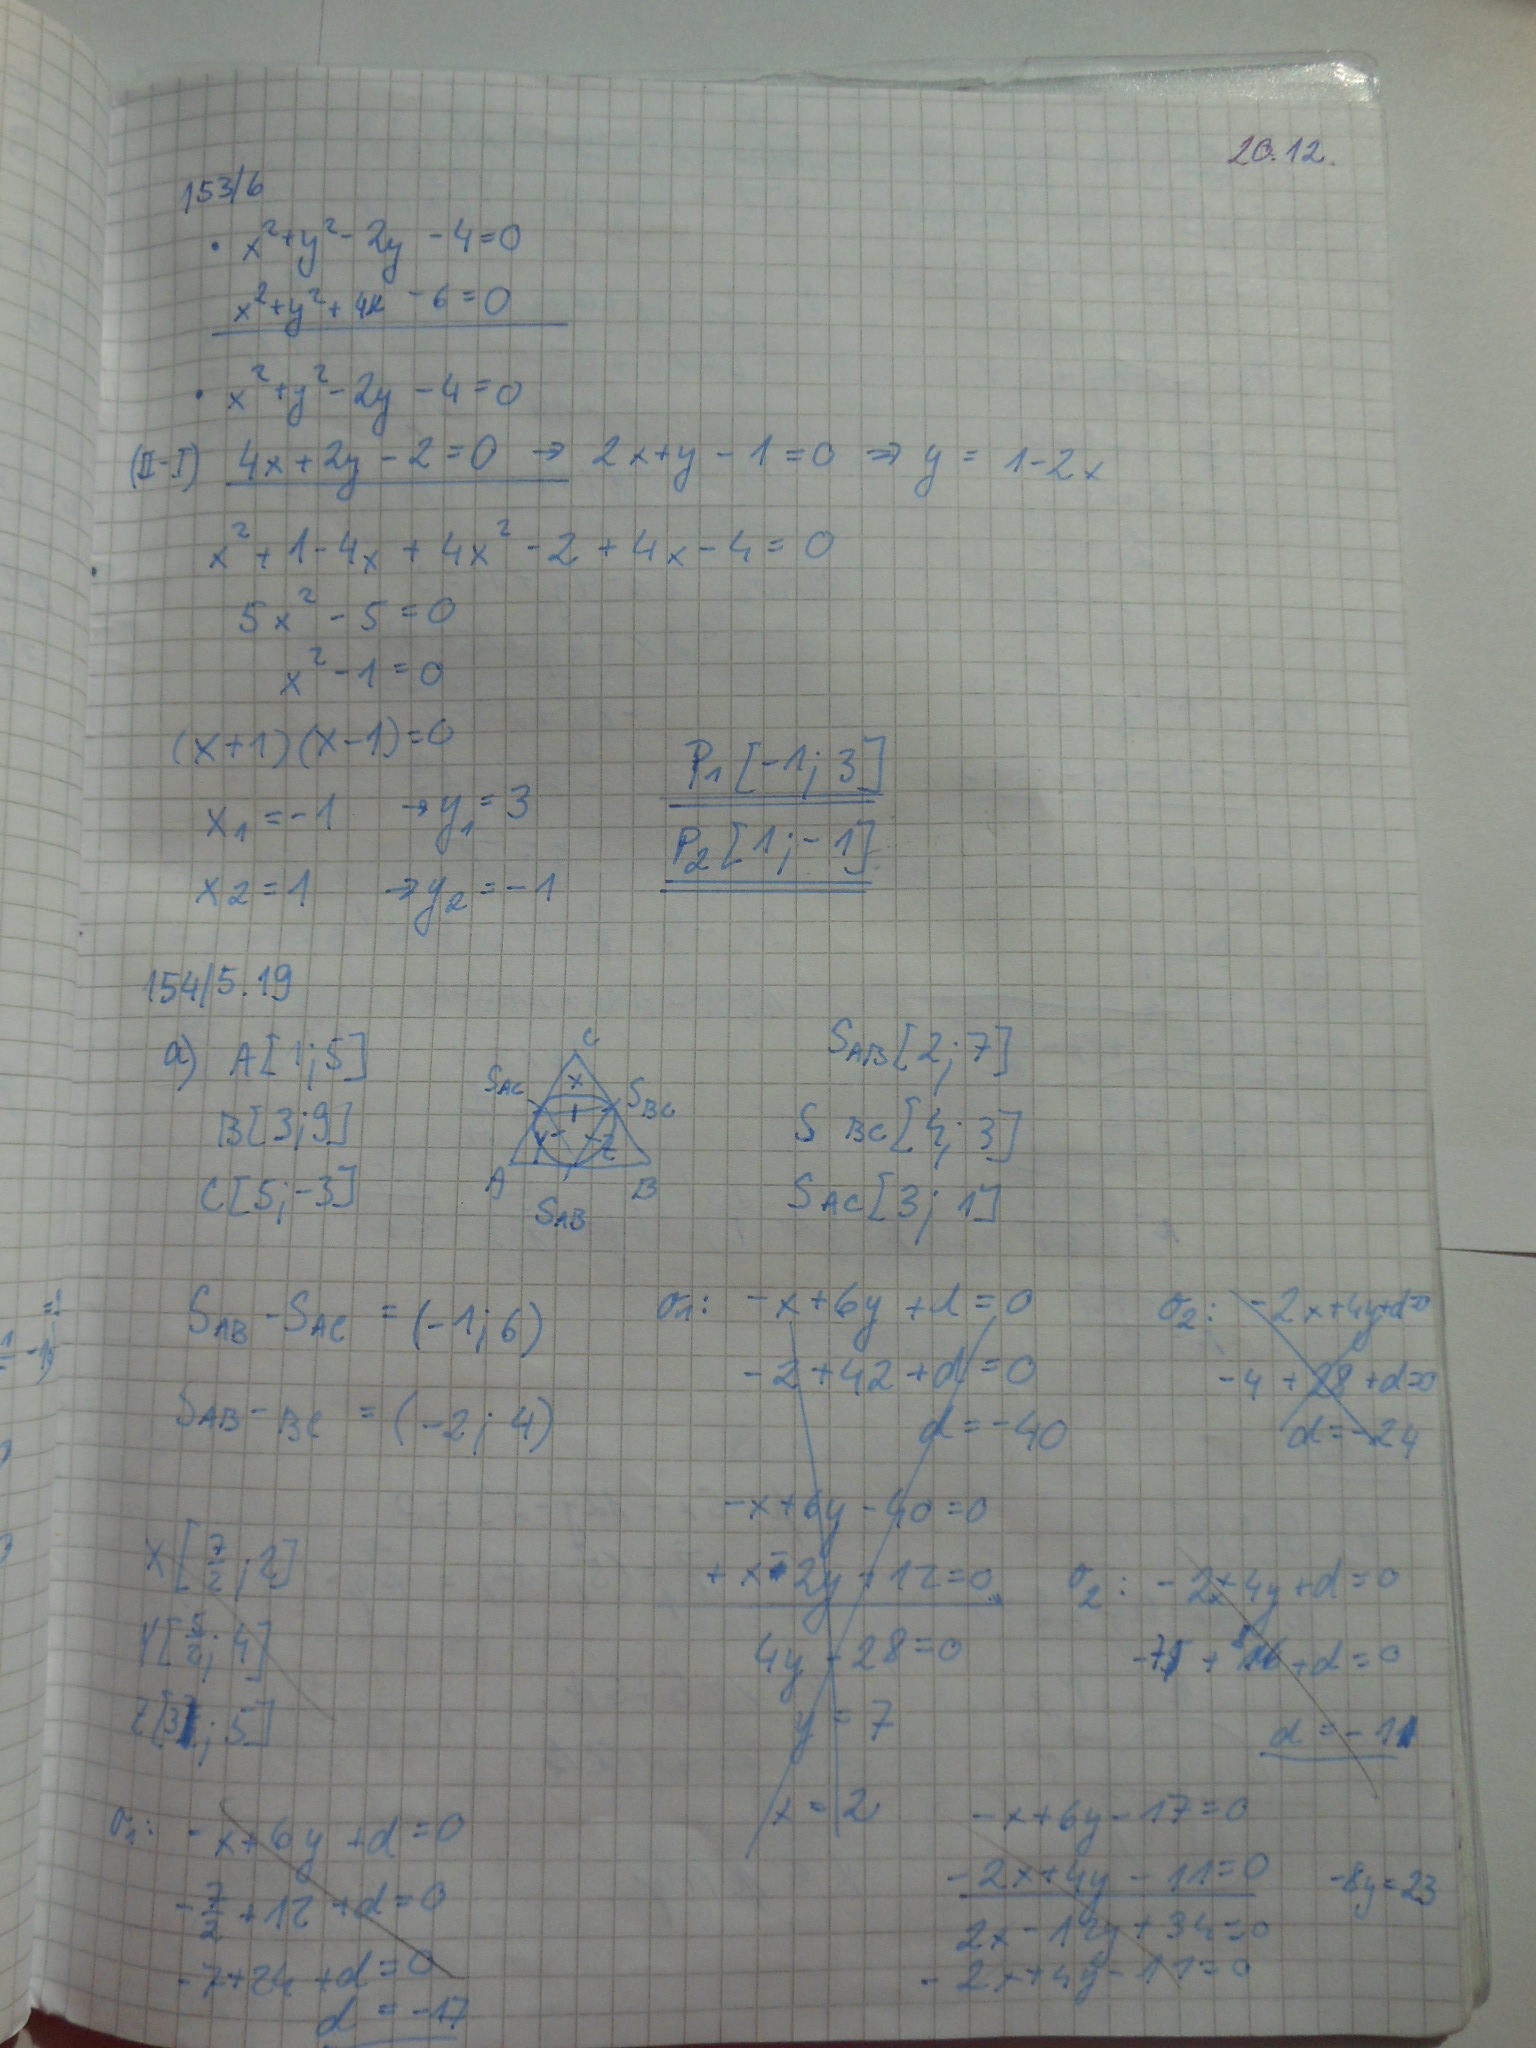 20.12.
153/6
• x²+y²-2y -4=0
x²+y²+4x -6=0
• x²+y²-2y -4=0
(II-I) 4x+2y-2=0 → 2x+y-1=0 ⇒ y = 1-2x
x²+1-4x+4x²-2+4x-4=0
5x²-5=0
x²-1=0
(x+1)(x-1)=0
x1=-1 → y1=3 P1[-1;3]
x2=1 → y2=-1 P2[1;-1]
154/5.19
a) A[1;5]
B[3;9]
C[5;-3]
C
X
SAC
SBC
Y
Z
A
B
SAB
SAB[2;7]
S BC[4;3]
SAC[3;1]
SAB-SAC = (-1;6)
SAB-BC = (-2;4)
σ1: -x+6y+d=0
-2+42+d=0
d=-40
-x+6y-40=0
+x-2y+12=0
4y-28=0
y=7
x=2
σ2: -2x+4y+d=0
-4+28+d=0
d=-24
X[7/2;2]
Y[5/2;4]
Z[3;5]
σ2: -2x+4y+d=0
d=-11
σ1: -x+6y+d=0
-7/2+12+d=0
-7+24+d=0
d=-17
-x+6y-17=0
-2x+4y-11=0 -8y=23
2x-12y+34=0
-2x+4y-11=0